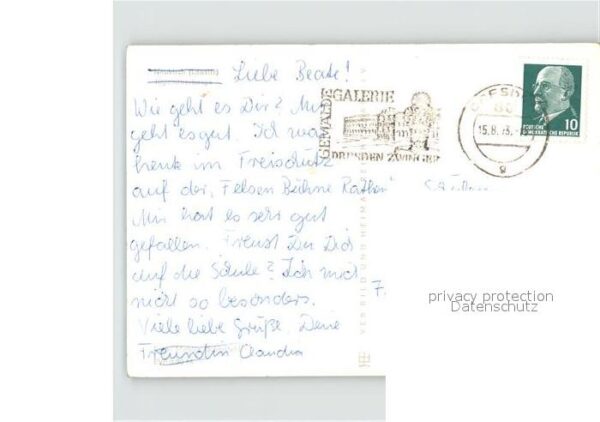 Liebe Beate!
Wie geht es Dir? Mir
geht es gut. Ich war
heute im Freischütz
auf der „Felsen Bühne Rathen“
Mir hat es sehr gut
gefallen. Freust Du Dich
auf die Schule? Ich mich
nicht so besonders.
Viele liebe Grüße. Deine
Freundin Claudia
GEMÄLDEGALERIE
DRESDEN ZWINGER
DRESDEN
15.8.73
g
DEUTSCHE
DEMOKRATISCHE REPUBLIK
10
VEB BILD UND HEIMAT
7.
privacy protection
Datenschutz